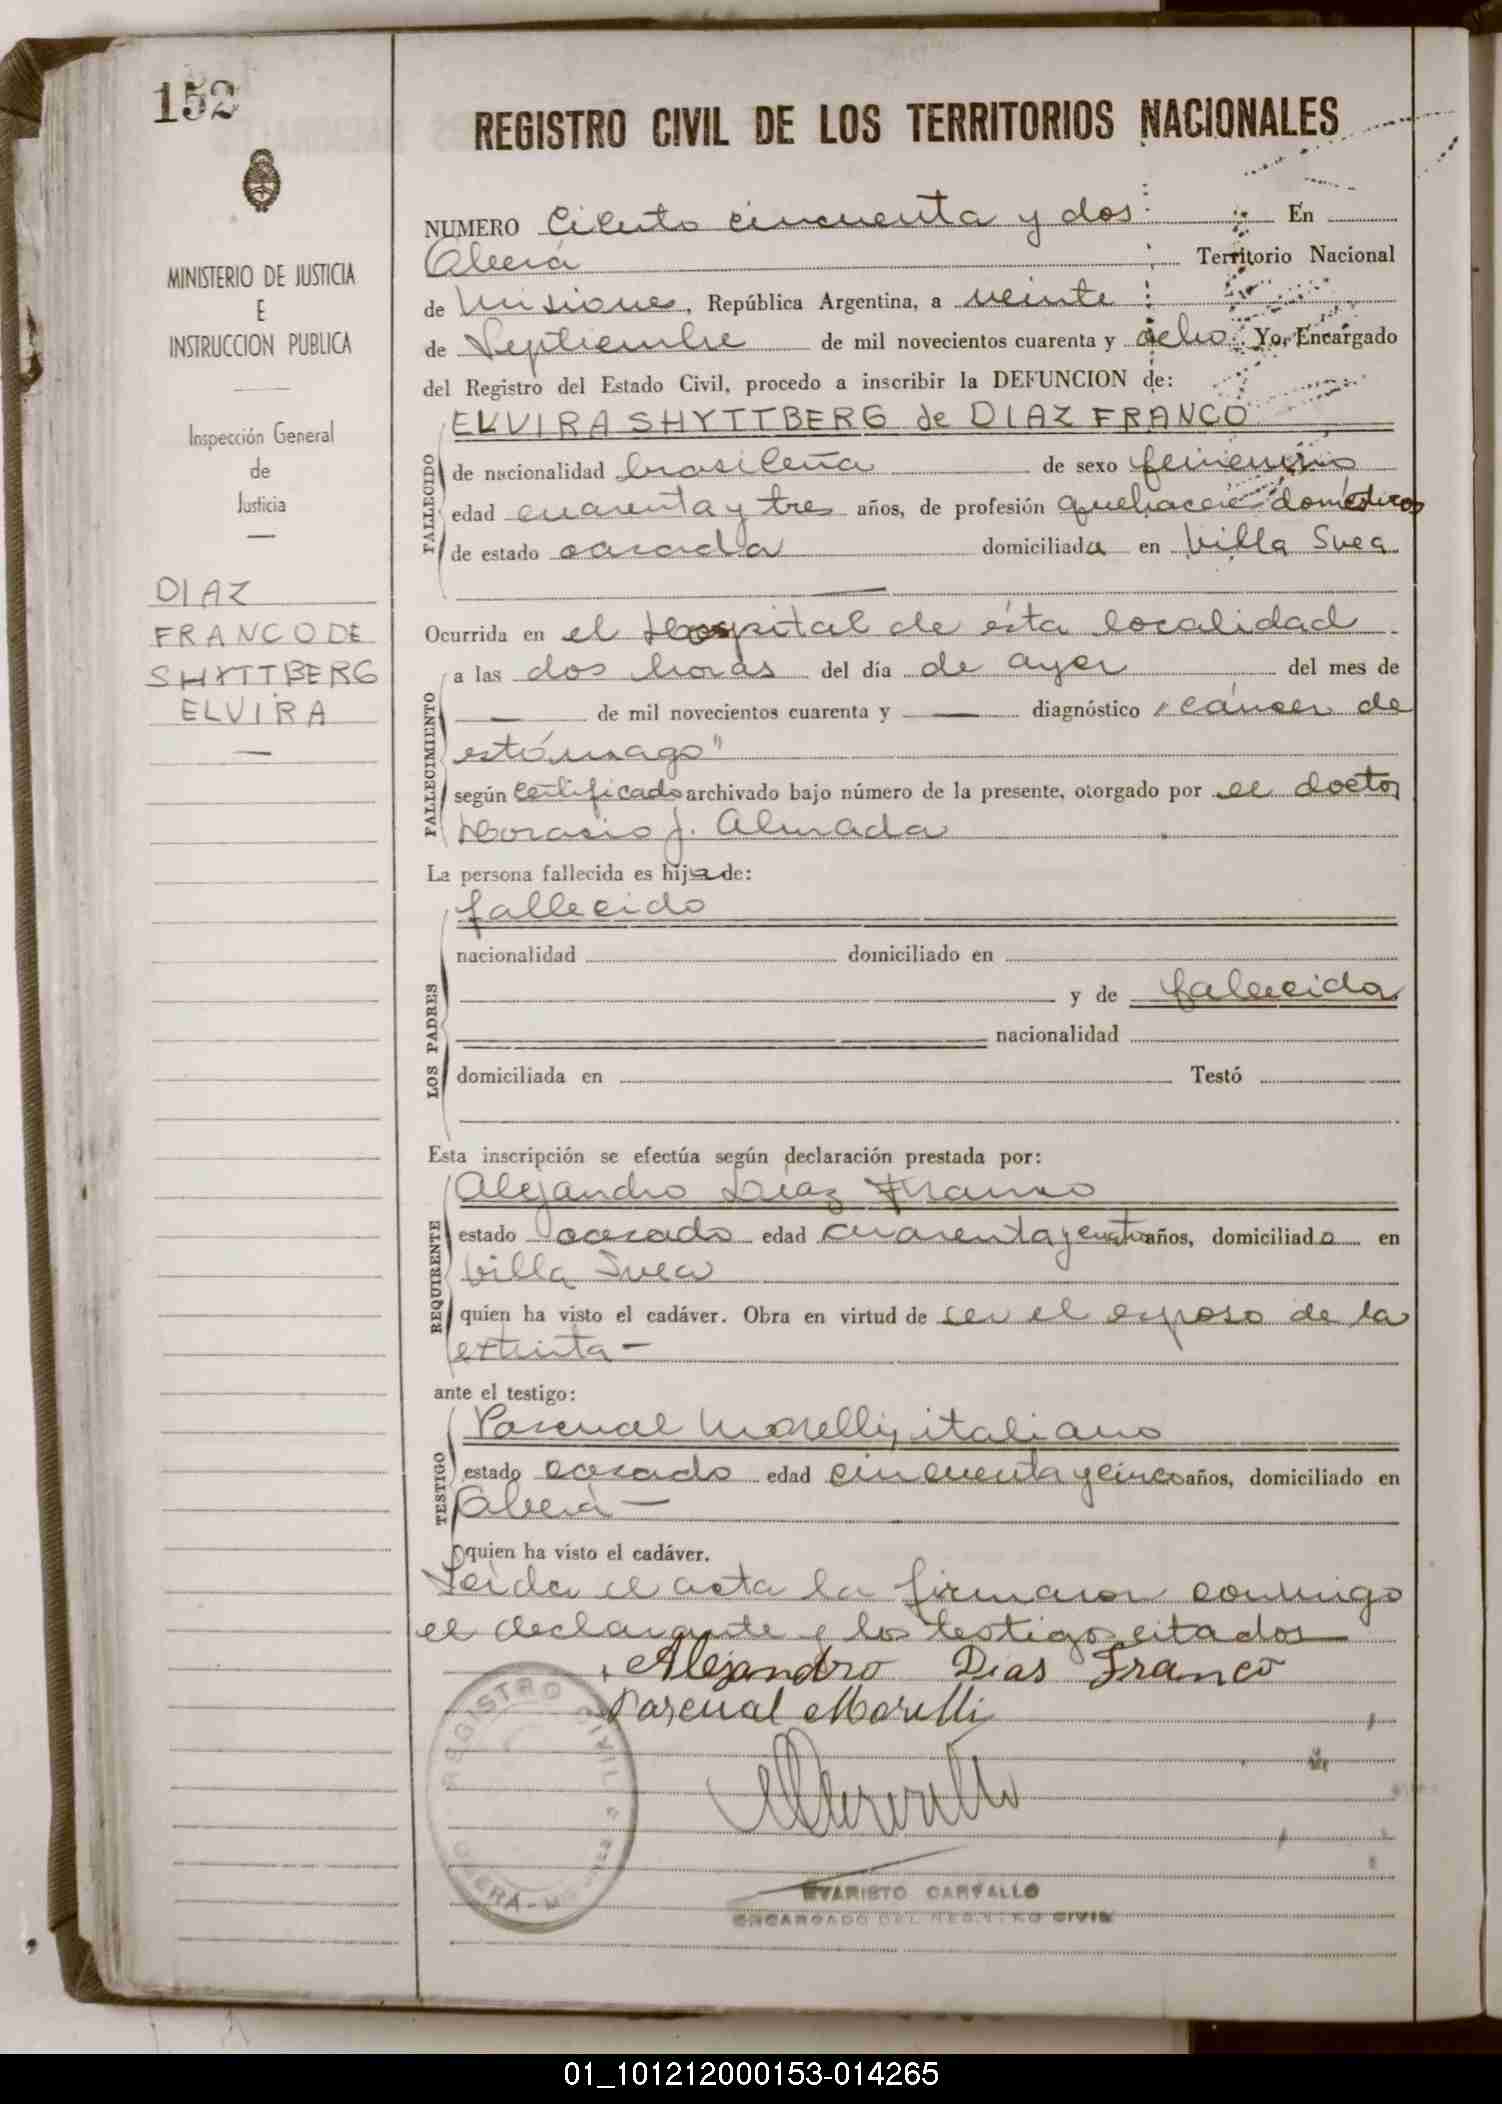 152
REGISTRO CIVIL DE LOS TERRITORIOS NACIONALES
MINISTERIO DE JUSTICIA
E
INSTRUCCION PUBLICA
Inspección General
de
Justicia
DIAZ
FRANCO DE
SHYTTBERG
ELVIRA
NUMERO Ciento cincuenta y dos En
Oberá Territorio Nacional
de Misiones, República Argentina, a veinte
de Septiembre de mil novecientos cuarenta y ocho Yo, Encargado
del Registro del Estado Civil, procedo a inscribir la DEFUNCION de:
ELVIRA SHYTTBERG de DIAZ FRANCO
FALLECIDO
de nacionalidad brasileña de sexo femenino
edad cuarenta y tres años, de profesión quehaceres domésticos
de estado casada domiciliada en Villa Svea
Ocurrida en el Hospital de ésta localidad
FALLECIMIENTO
a las dos horas del día de ayer del mes de
— de mil novecientos cuarenta y — diagnóstico "cáncer de
estómago"
según certificado archivado bajo número de la presente, otorgado por el doctor
Horacio J. Almada
La persona fallecida es hija de:
LOS PADRES
fallecido
nacionalidad domiciliado en
y de fallecida
nacionalidad
domiciliada en Testó
Esta inscripción se efectúa según declaración prestada por:
REQUIRENTE
Alejandro Diaz Franco
estado casado edad cuarenta y cuatro años, domiciliado en
Villa Svea
quien ha visto el cadáver. Obra en virtud de ser el esposo de la
extinta —
ante el testigo:
TESTIGO
Pascual Morelli, italiano
estado casado edad cincuenta y cinco años, domiciliado en
Oberá —
quien ha visto el cadáver.
Leida el acta la firmaron conmigo
el declarante y los testigos citados
Alejandro Dias Franco
Pascual Morelli
REGISTRO CIVIL
OBERÁ - M
EVARISTO CARVALLO
ENCARGADO DEL REGISTRO CIVIL
01_101212000153-014265